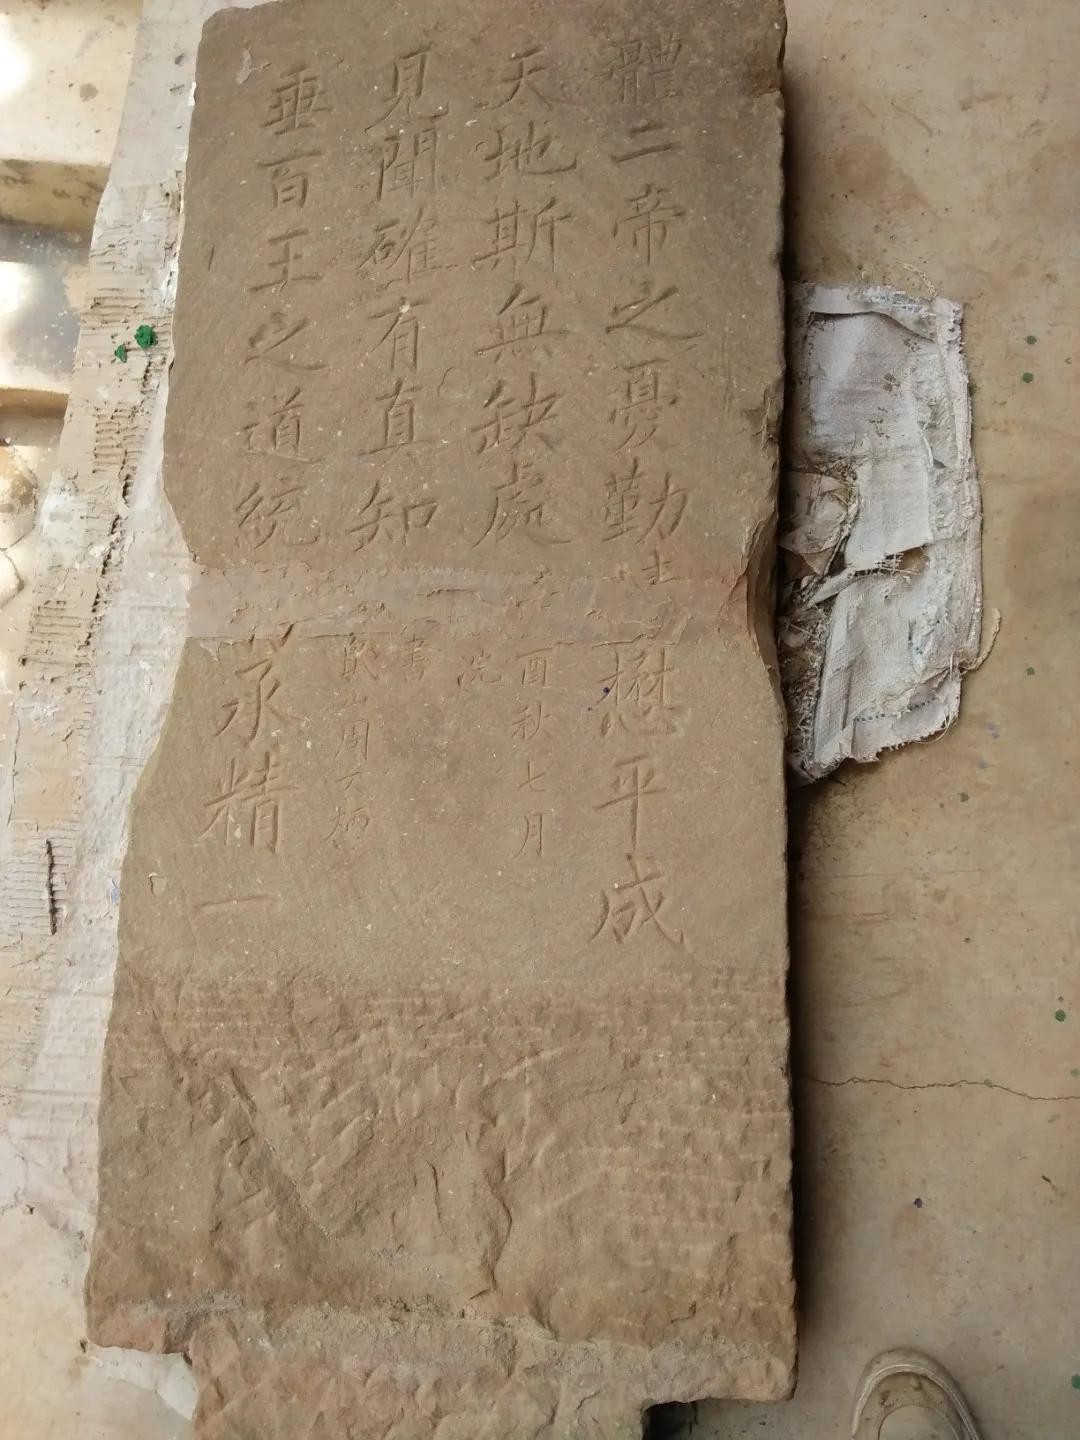 體二帝之憂勤 懋平成
天地斯無缺處
酉秋七月
見聞確有真知
書
山周 炳
垂百王之道統 承精一